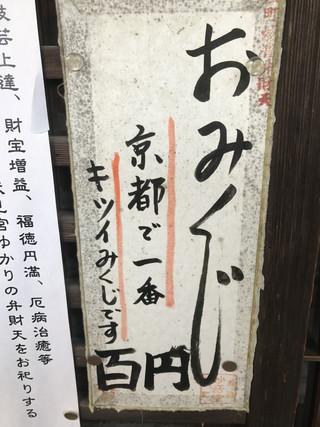 おみくじ
京都で一番
キツイみくじです
百円
技芸上達、財宝増益、福徳円満、厄病治癒等
宮ゆかりの弁財天をお祀りする